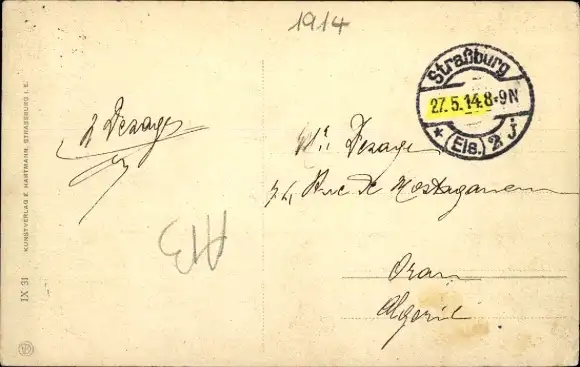 1914
Straßburg
27.5.14.8-9N
* (Els.) 2 j
Dezage
Dezage
Rue de Mostaganem
Oran
Algerie
A13
KUNSTVERLAG E. HARTMANN, STRASSBURG I. E.
IX 31